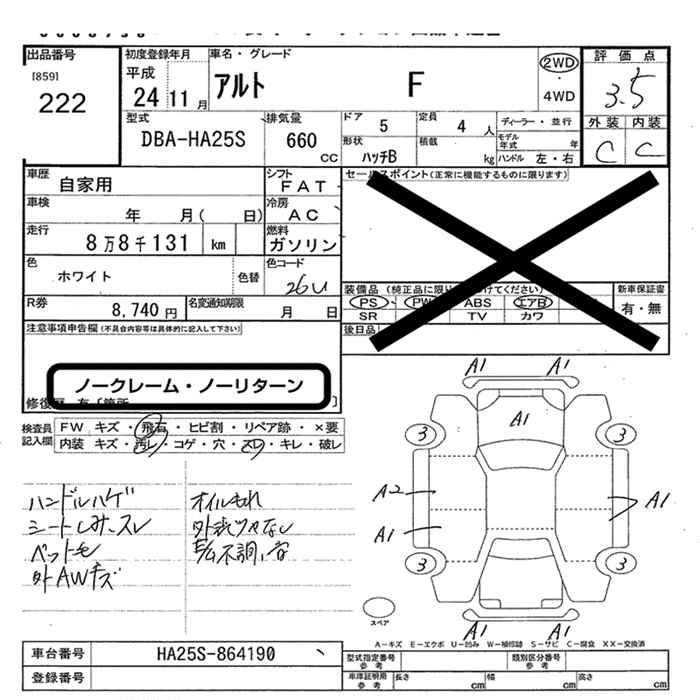 出品番号
[859]
222
初度登録年月
平成
24 11 月
車名・グレード
アルト F
2WD
・
4WD
評価点
3.5
外装 内装
C C
型式
DBA-HA25S
排気量
660
CC
ドア 5
定員 4 人
ディーラー・並行
形状
ハッチB
積載
kg
モデル年式 年
ハンドル 左・右
車歴
自家用
シフト
FAT
セールスポイント(正常に機能するものに限ります)
車検
年 月( 日)
冷房
AC
走行
8万8千131 km
燃料
ガソリン
色
ホワイト
色替
色コード
26U
装備品
PS PW ABS エアB
SR TV カワ
新車保証書
有・無
後日品
R券
8,740 円
名変通知期限
月 日
注意事項申告欄(不具合内容等は具体的に記入して下さい)
ノークレーム・ノーリターン
検査員記入欄
FW キズ・飛石・ヒビ割・リペア跡・×要
内装 キズ・汚レ・コゲ・穴・スレ・キレ・破レ
ハンドルハゲ
シートしみ、スレ
ペットモ
外AWキズ
オイルもれ
A1 A1
A1
3 3
A2
A1
A1
3 3
A1 A1
スペア
A-キズ M-エクボ U-凹み W-補修跡 S-サビ C-腐食 XX-交換済
車台番号
HA25S-864190
登録番号
型式指定番号
参考
類別区分番号
参考
車庫証明用
参考
長さ cm
幅 cm
高さ cm